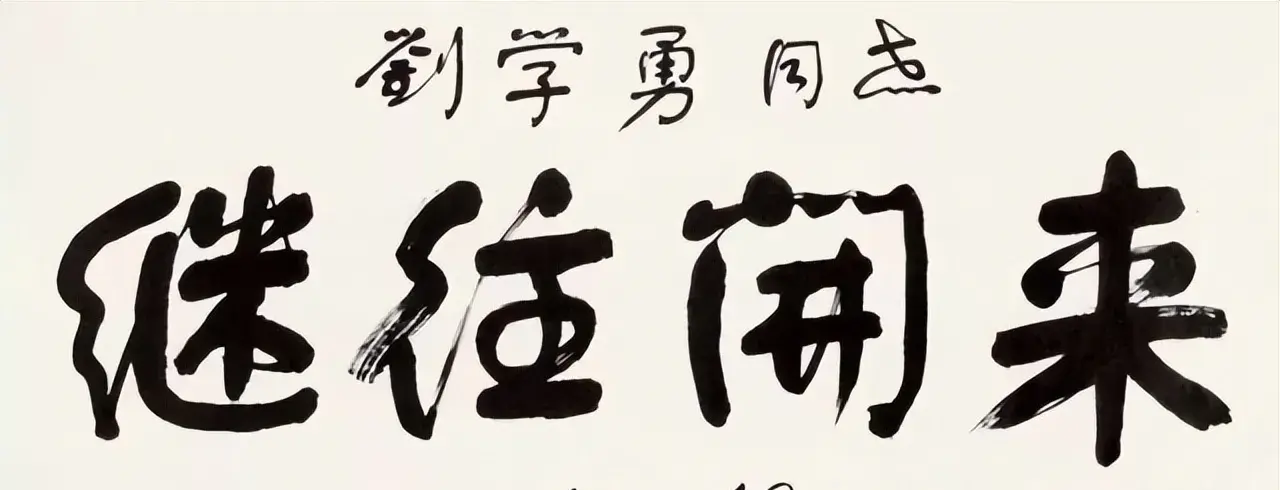 劉学勇同志
继往開来